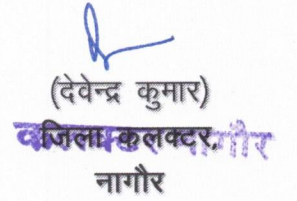 (देवेन्द्र कुमार)
जिला कलक्टर,
नागौर